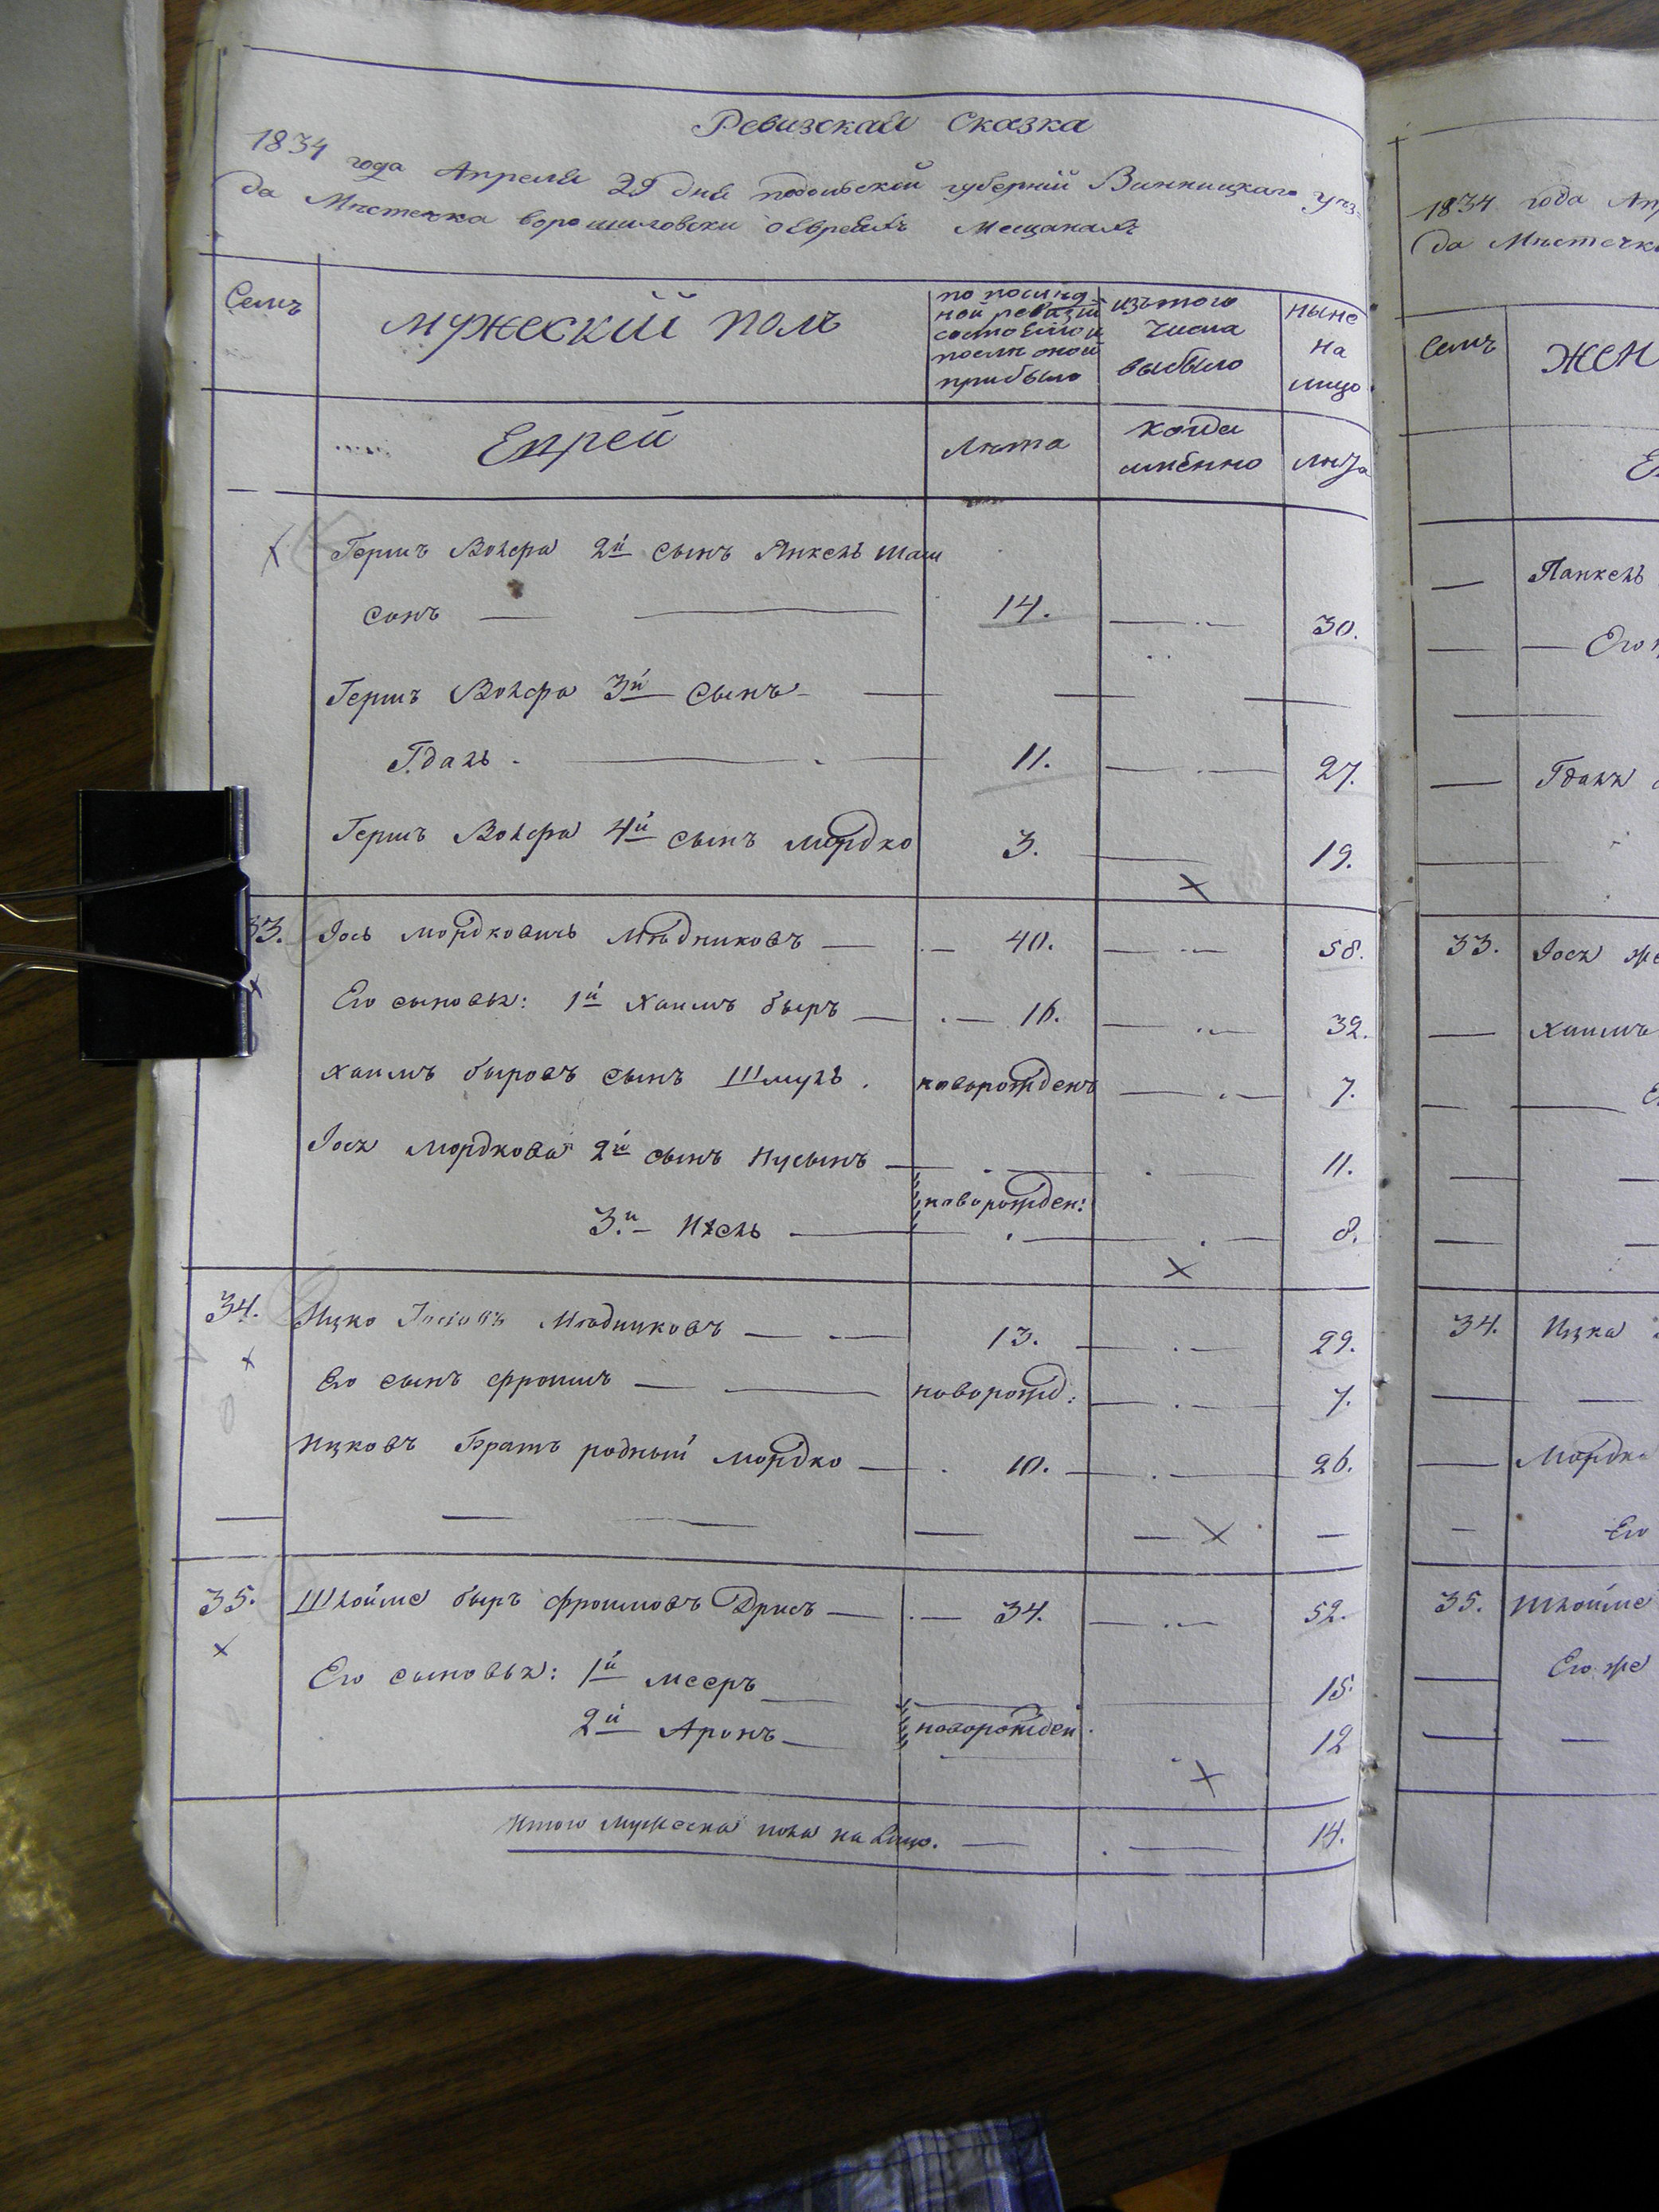 Ревизская Сказка
1834 года Апреля 29 дня подольской губернiй Винницкаго уѣз-
да Мѣстечка ворошиловски о Евреяхъ Мещанахъ
Семъ
мужескiй полъ
по послѣд
ной ревизiй
состояло и
послѣ оной
прибыло
изъ того
числа
выбыло
ныне
на
лицо
Еврей
лѣта
когда
имѣнно
лѣта
Гершъ Волфа 2й сынъ Янкель Шам
сонъ — — 14. — 30.
Гершъ Волфа 3й сынъ — — —
Гдаль — 11. — 27.
Гершъ Волфа 4й сынъ мордко 3. — 19.
33. Iось мордковичъ Мѣдниковъ — 40. — 58.
Его сыновья: 1й хаимъ быръ — 16. — 32.
хаимъ быровъ сынъ Шмуль новорожденъ — 7.
Iося мордкова 2й сынъ Нусынъ — — 11.
новорожден:
3й Ицель — — 8.
34. Ицко Мѣдниковъ — — 13. — 29.
Его сынъ фроимъ — — новорожд: — 7.
Ицковъ Братъ родный мордко — 10. — 26.
— — — — — —
35. Шлойме быръ фроимовъ Дрисъ — 34. — 52.
Его сыновья: 1й мееръ — 15.
2й Аронъ — новорожден 12
итого мужеска пола на лицо. — — 14.
1834 года Апр
да Мѣстечка
Семъ
жен
Ев
— Янкель
— — Его
— Гдаля
33. Iося же
— хаимъ
— —
— —
— —
34. Ицка
— —
— Мордка
— Его
35. Шлойме
— Его же
— —